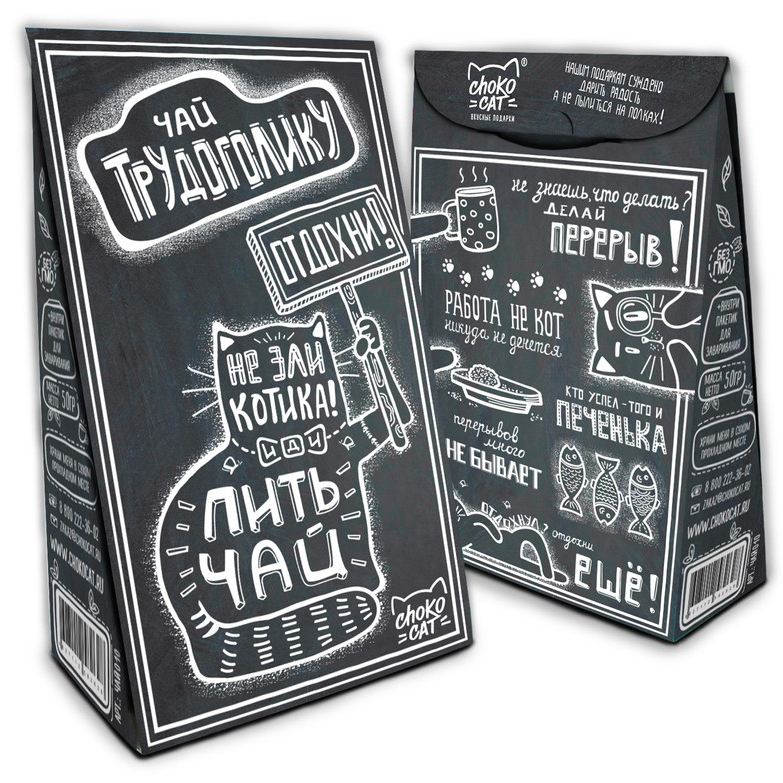 ЧАЙ
ТРУДОГОЛИКУ
ОТДОХНИ!
НЕ ЗЛИ
КОТИКА!
ИДИ
ПИТЬ
ЧАЙ
CHOKO
CAT
БЕЗ
ГМО
+ВНУТРИ
ПАКЕТИК
ДЛЯ
ЗАВАРИВАНИЯ
МАССА
НЕТТО 50ГР
ХРАНИ МЕНЯ В СУХОМ
ПРОХЛАДНОМ МЕСТЕ
8 800 222-36-02
ZAKAZ@CHOKOCAT.RU
WWW.CHOKOCAT.RU
АРТ.: ЧАЙ010
CHOKO
CAT®
ВКУСНЫЕ ПОДАРКИ
НАШИМ ПОДАРКАМ СУЖДЕНО
ДАРИТЬ РАДОСТЬ
А НЕ ПЫЛИТЬСЯ НА ПОЛКАХ!
не знаешь, что делать?
ДЕЛАЙ
ПЕРЕРЫВ!
РАБОТА НЕ КОТ
никуда не денется
КТО УСПЕЛ - ТОГО И
ПЕЧЕНЬКА
перерывов
много
НЕ БЫВАЕТ
ОТДОХНУЛ? отдохни
ЕЩЁ!
БЕЗ
ГМО
+ВНУТРИ
ПАКЕТИК
ДЛЯ
ЗАВАРИВАНИЯ
МАССА
НЕТТО 50ГР
ХРАНИ МЕНЯ В СУХОМ
ПРОХЛАДНОМ МЕСТЕ
8 800 222-36-02
ZAKAZ@CHOKOCAT.RU
WWW.CHOKOCAT.RU
АРТ.: ЧАЙ010